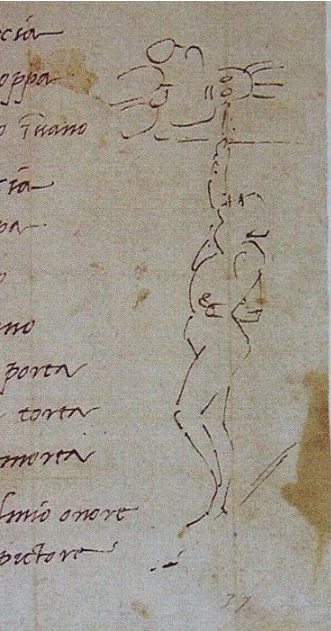 cia
oppa
o īuano
cia
pa
o
ano
porta
torta
morta
lmio onore
pictore